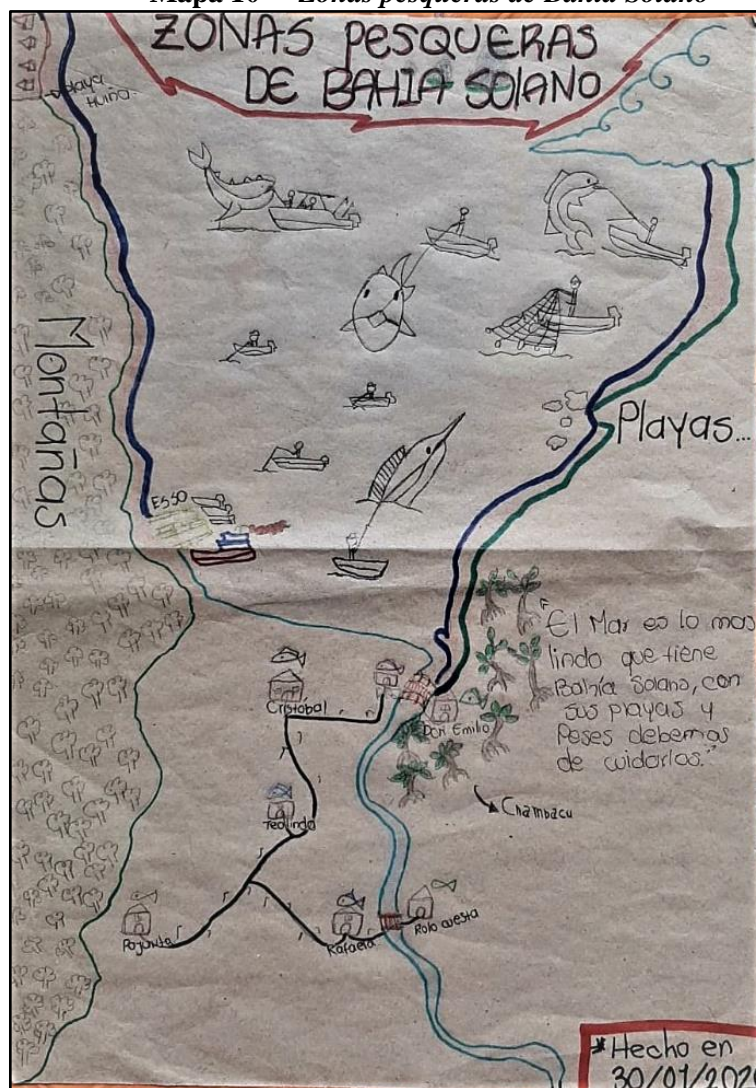 Mapa 10 Zonas pesqueras de Bahía Solano
ZONAS PESQUERAS
DE BAHIA SOLANO
Playa
Huina
Montañas
Playas...
ESSO
"El Mar es lo mas
lindo que tiene
Bahía Solano, con
sus playas y
Peses debemos
de cuidarlos."
Cristóbal
Don Emilio
Chambacu
Teolinda
Rafaela
Rolo cuesta
*Hecho en